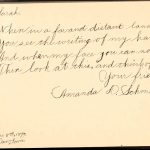 Sarah
When in a far and distant land
You see the writing of my hand
And when my face you can not
Then look at this, and think of
Your friend
Amanda D. Schm